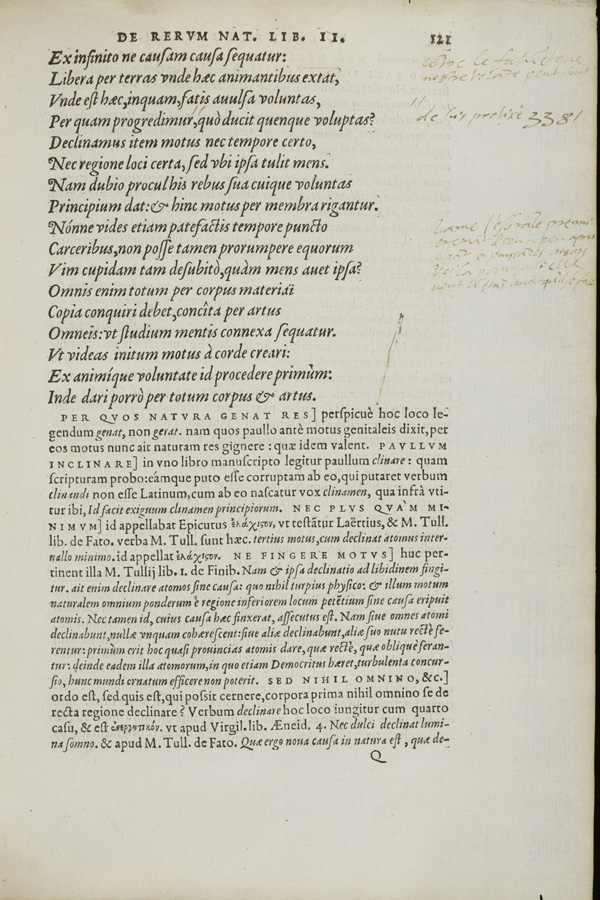 DE RERVM NAT. LIB. II. 121
Ex infinito ne causam causa sequatur:
Libera per terras vnde hæc animantibus extat,
Vnde est hæc, inquam, fatis auulsa voluntas,
Per quam progredimur, quò ducit quenque voluptas?
Declinamus item motus nec tempore certo,
Nec regione loci certa, sed vbi ipsa tulit mens.
Nam dubio procul his rebus sua cuique voluntas
Principium dat: & hinc motus per membra rigantur.
Nónne vides etiam patefactis tempore puncto
Carceribus, non posse tamen prorumpere equorum
Vim cupidam tam desubitò, quàm mens auet ipsa?
Omnis enim totum per corpus materiaï
Copia conquiri debet, concîta per artus
Omneis: vt studium mentis connexa sequatur.
Vt videas initum motus à corde creari:
Ex animíque voluntate id procedere primùm:
Inde dari porrò per totum corpus & artus.
PER QVOS NATVRA GENAT RES] perspicuè hoc loco le-
gendum genat, non gerat. nam quos paullo antè motus genitaleis dixit, per
eos motus nunc ait naturam res gignere: quæ idem valent. PAVLLVM
INCLINARE] in vno libro manuscripto legitur paullum clinare: quam
scripturam probo: eámque puto esse corruptam ab eo, qui putaret verbum
clinandi non esse Latinum, cum ab eo nascatur vox clinamen, qua infrà vti-
tur ibi, Id facit exiguum clinamen principiorum. NEC PLVS QVAM MI-
NIMVM] id appellabat Epicurus ἐλάχιστον, vt testãtur Laërtius, & M. Tull.
lib. de Fato. verba M. Tull. sunt hæc. tertius motus, cum declinat atomus inter-
uallo minimo. id appellat ἐλάχιστον. NE FINGERE MOTVS] huc per-
tinent illa M. Tullij lib. 1. de Finib. Nam & ipsa declinatio ad libidinem fingi-
tur. ait enim declinare atomos sine causa: quo nihil turpius physico: & illum motum
naturalem omnium ponderum è regione inferiorem locum petẽtium sine causa eripuit
atomis. Nec tamen id, cuius causa hæc finxerat, assecutus est. Nam siue omnes atomi
declinabunt, nullæ vnquam cohærescent: siue aliæ declinabunt, aliæ suo nutu rectè fe-
rentur: primùm erit hoc quasi prouincias atomis dare, quæ rectè, quæ obliquè feran-
tur: deinde eadem illa atomorum, in quo etiam Democritus hæret, turbulenta concur-
sio, hunc mundi ornatum efficere non poterit. SED NIHIL OMNINO, &c.]
ordo est, sed quis est, qui possit cernere, corpora prima nihil omnino se de
recta regione declinare? Verbum declinare hoc loco iungitur cum quarto
casu, & est ἐνεργητικόν. vt apud Virgil. lib. Æneid. 4. Nec dulci declinat lumi-
na somno. & apud M. Tull. de Fato. Quæ ergo noua causa in natura est, quæ de-
Q